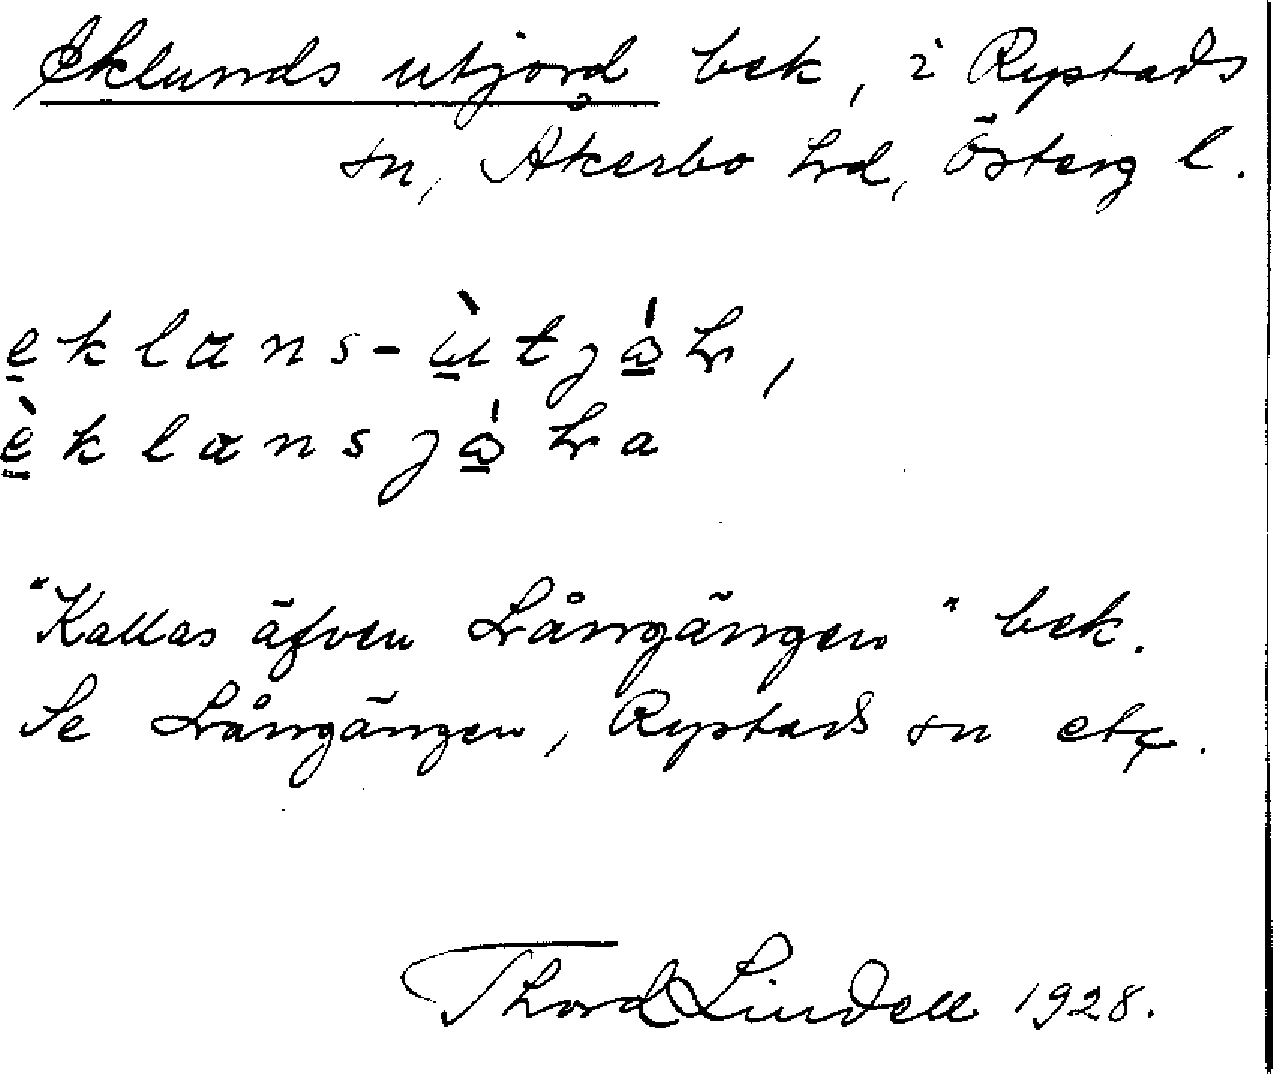 Eklunds utjord bek, i Rystads
sn, Åkerbo hrd, Österg l.
eklans-ùtjo̱h,
èklansjo̱ha
"Kallas äfven Långängen" bek.
Se Långängen, Rystads sn etc.
Thord Lindell 1928.